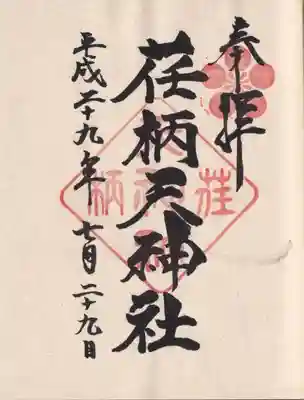 奉拝
荏柄天神社
平成二十九年七月二十九日